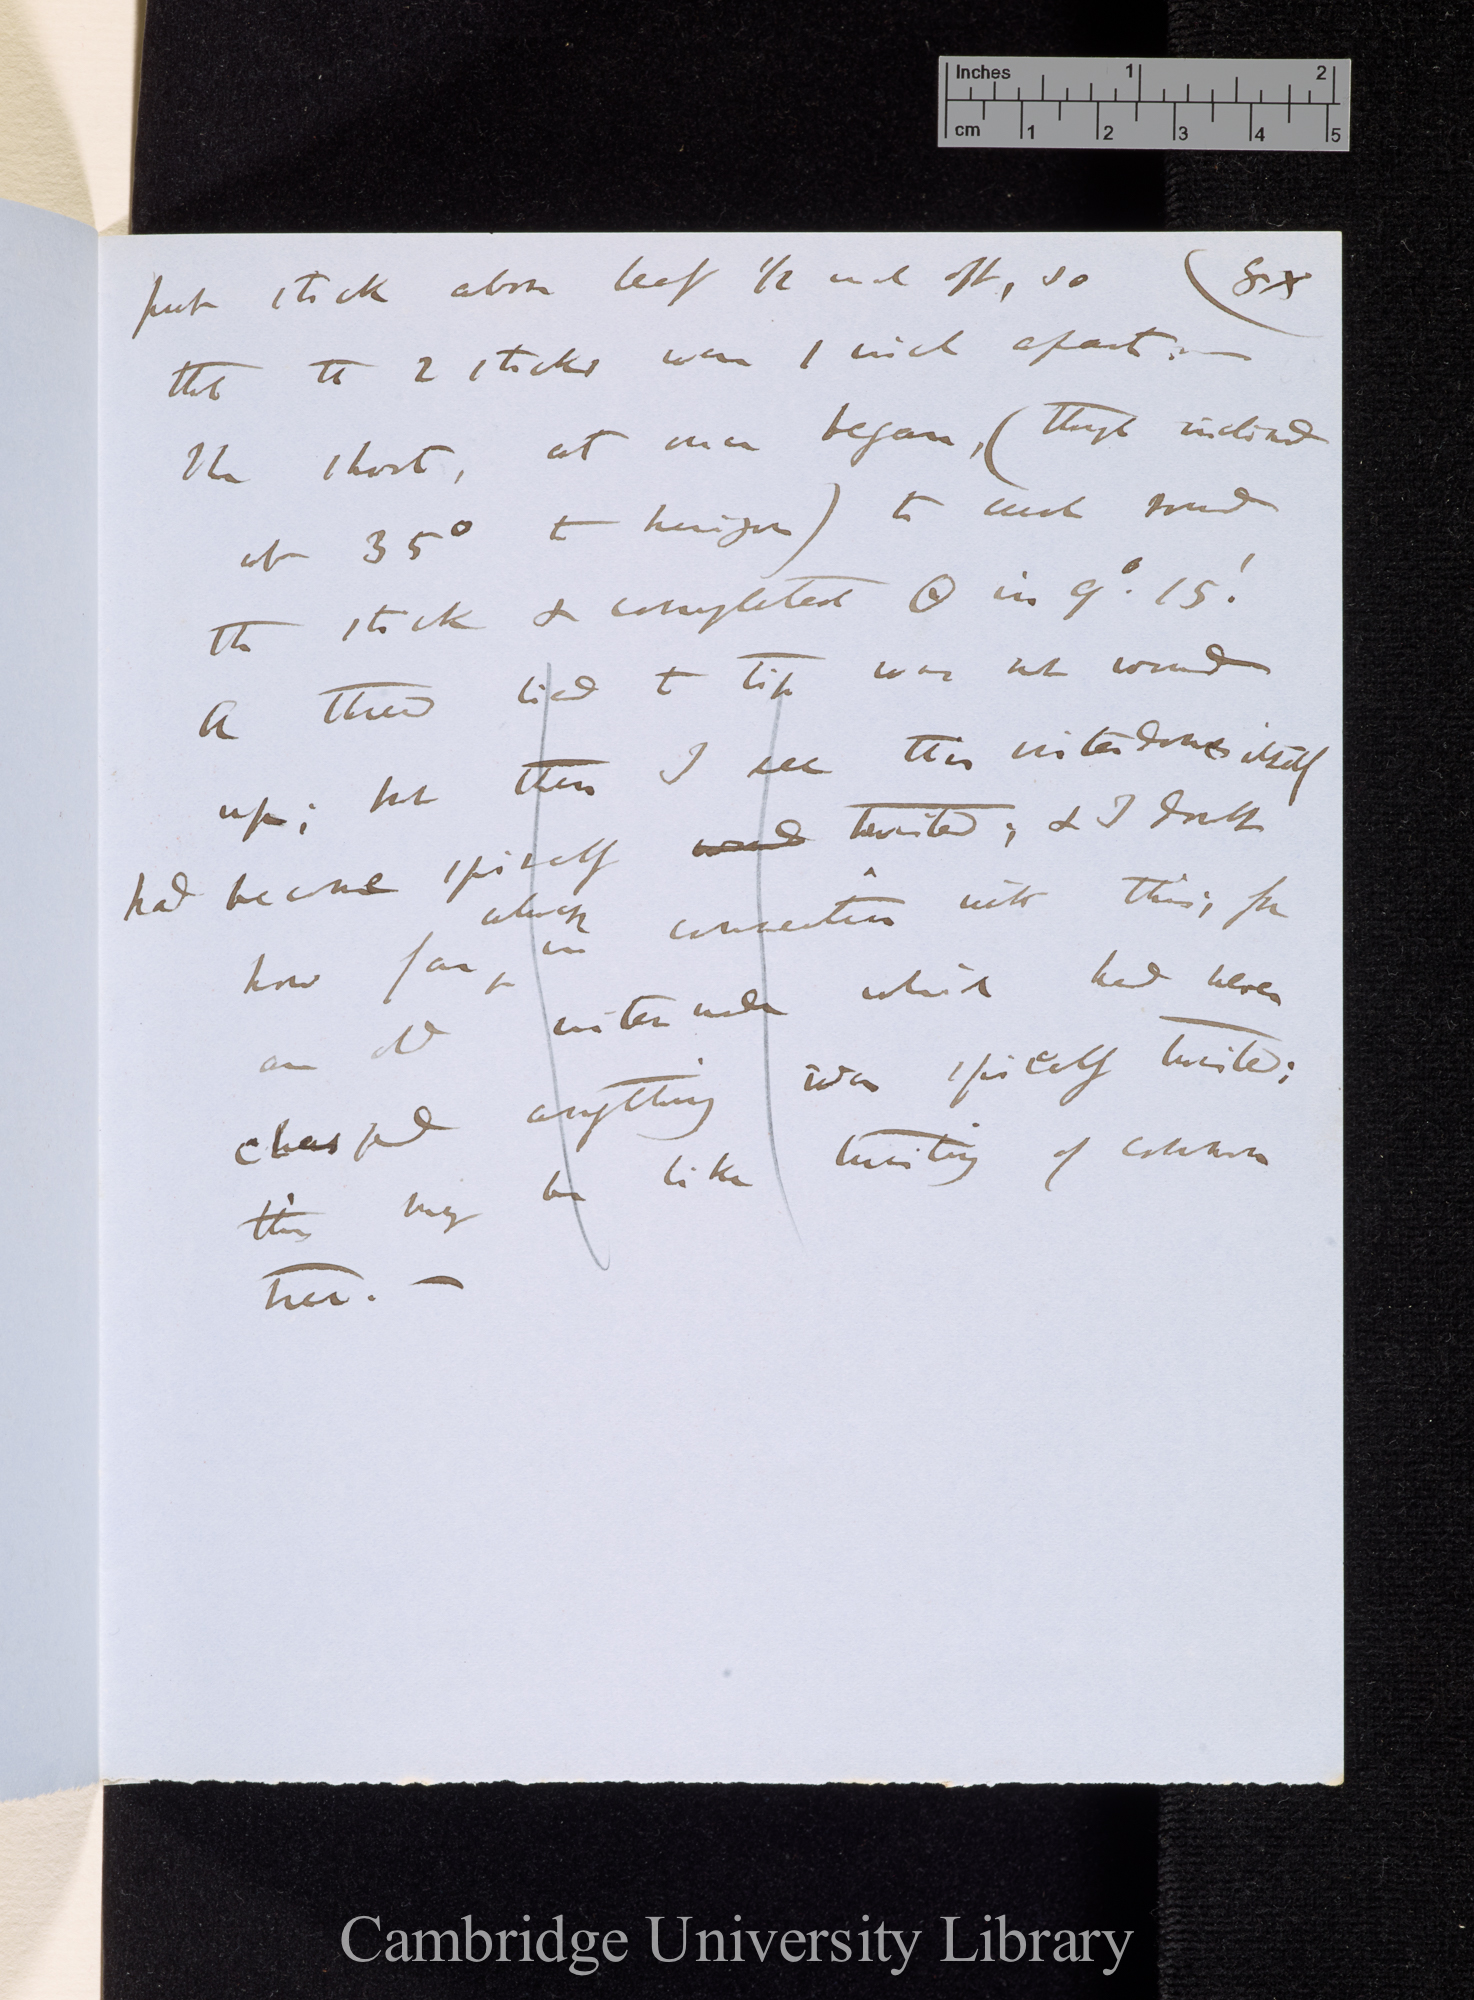 Inches 1 2
cm 1 2 3 4 5
put stick above leaf 1/2 inch off, so
that the 2 sticks were 1 inch apart.—
The shoot, at once began, (though inclined
at 35° to horizon) to curl round
the stick & completed O in 9°. 15'.
A thread tied to tip was not wound
up; but then I see this internode itself
had become spirally wound twisted; & I doubt
how far, always in connection with this; for
an old internode which had never
clasped anything was spirally twisted;
this may be like twisting of common
tree. —
Cambridge University Library